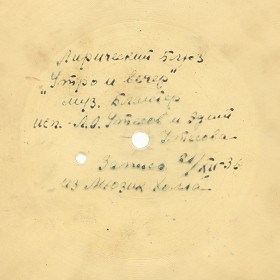 Лирический блюз
"Утро и вечер"
муз. Блантер
исп. - Л.О. Утесов и Эдит
Утесова
Запись 21/XII-36
из Мюзик Холла